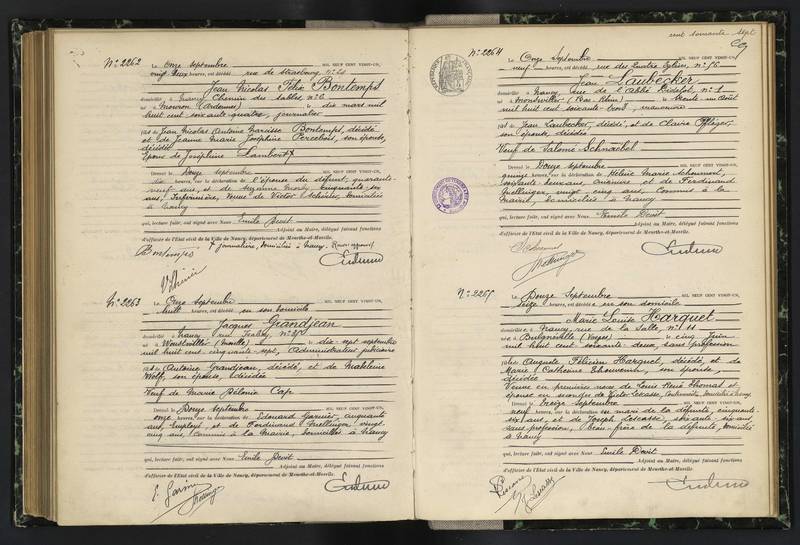 cent soixante sept
N° 2262
Le Onze Septembre MIL NEUF CENT VINGT-UN,
vingt deux heures, est décédé rue de Strasbourg n° 21
Jean Nicolas Félix Bontemps
domicilié à Nancy Chemin des Sables, n° 6
né à Mouron (Ardennes) le dix mars mil
huit cent soixante-quatre, journalier
fils de Jean Nicolas Antoine Narcisse Bontemps, décédé
et de Jeanne Marie Joséphine son épouse,
décédée
Epoux de Joséphine Lambert
Devant le Douze Septembre MIL NEUF CENT VINGT-UN,
dix heures, sur la déclaration de l'épouse du défunt, quarante-
neuf ans, et de Suzanne cinquante six
ans, Infirmière, veuve de Victor domiciliés
à Nancy
qui, lecture faite, ont signé avec Nous Emile
Adjoint au Maire, délégué faisant fonctions
d'officier de l'Etat civil de la Ville de Nancy, département de Meurthe-et-Moselle.
Bontemps journalière, domiciliée à Nancy.
N° 2263
Le Onze Septembre MIL NEUF CENT VINGT-UN,
huit heures, est décédé en son domicile
Jacques Grandjean
domicilié à Nancy rue
né à (Moselle) le dix sept septembre
mil huit cent cinquante sept, Administrateur judiciaire
fils de Antoine Grandjean, décédé, et de Madeleine
Wolff, son épouse, décédée
Veuf de Marie
Devant le Douze Septembre MIL NEUF CENT VINGT-UN,
onze heures, sur la déclaration de Edouard Garnier, cinquante
ans, Employé, et de Ferdinand vingt
cinq ans, Commis à la Mairie, domiciliés à Nancy
qui, lecture faite, ont signé avec Nous Emile
Adjoint au Maire, délégué faisant fonctions
d'officier de l'Etat civil de la Ville de Nancy, département de Meurthe-et-Moselle.
N° 2264
Le Onze Septembre MIL NEUF CENT VINGT-UN,
neuf heures, est décédé rue des Quatre Eglises, n° 56
Jean Laubecker
domicilié à Nancy, rue de l'Abbé Didelot, n° 1
né à (Bas Rhin) le trente un Août
mil huit cent soixante
fils de Jean Laubecker, décédé, et de Claire Pfleger,
son épouse, décédée
Veuf de Salomé Schnaebel
Devant le Douze Septembre MIL NEUF CENT VINGT-UN,
quinze heures, sur la déclaration de Hélène Marie
soixante deux ans, et de Ferdinand
vingt cinq ans, Commis à la
Mairie, domiciliés à Nancy
qui, lecture faite, ont signé avec Nous Emile
Adjoint au Maire, délégué faisant fonctions
d'officier de l'Etat civil de la Ville de Nancy, département de Meurthe-et-Moselle.
N° 2265
Le Douze Septembre MIL NEUF CENT VINGT-UN,
seize heures, est décédée en son domicile
Marie Louise Harquet
domiciliée à Nancy, rue de la Salle, n° 11
née à Bulgnéville (Vosges) le cinq Juin
mil huit cent soixante deux, sans profession
fille de Auguste Félicien Harquel, décédé, et de
Marie Catherine Thouvenin, son épouse,
décédée
Veuve en premières noces de Louis René Thomas et
épouse en secondes de Victor Lecasse,
Devant le Treize Septembre MIL NEUF CENT VINGT-UN,
neuf heures, sur la déclaration du mari de la défunte, cinquante-
six ans, et de Joseph Lecasse, soixante six ans
sans profession, beau-frère de la défunte, domiciliés
à Nancy
qui, lecture faite, ont signé avec Nous Emile
Adjoint au Maire, délégué faisant fonctions
d'officier de l'Etat civil de la Ville de Nancy, département de Meurthe-et-Moselle.